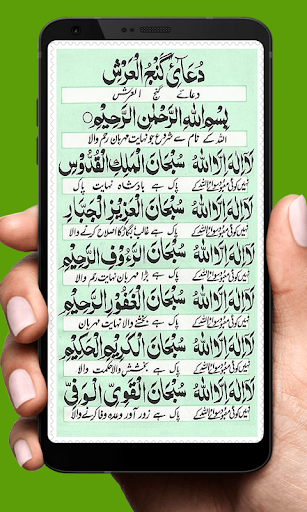 دُعَائے گَنجُ الْعَرْش
دعائے گنج العرش
بِسْمِ اللهِ الرَّحْمٰنِ الرَّحِيْمِ
اللہ کے نام سے شروع جو نہایت رحم والا
لَا اِلٰهَ اِلَّا اللهُ سُبْحَانَ الْمَلِكِ الْقُدُّوْسِ
نہیں کوئی معبود سوائے اللہ کے پاک ہے بادشاہ نہایت پاک
لَا اِلٰهَ اِلَّا اللهُ سُبْحَانَ الْعَزِيْزِ الْجَبَّارِ
نہیں کوئی معبود سوائے اللہ کے پاک ہے غالب بگاڑ کا اصلاح کرنے والا
لَا اِلٰهَ اِلَّا اللهُ سُبْحَانَ الرَّءُوْفِ الرَّحِيْمِ
نہیں کوئی معبود سوائے اللہ کے پاک ہے بڑا مہربان نہایت رحم والا
لَا اِلٰهَ اِلَّا اللهُ سُبْحَانَ الْغَفُوْرِ الرَّحِيْمِ
نہیں کوئی معبود سوائے اللہ کے پاک ہے بخشنے والا نہایت مہربان
لَا اِلٰهَ اِلَّا اللهُ سُبْحَانَ الْكَرِيْمِ الْحَكِيْمِ
نہیں کوئی معبود سوائے اللہ کے پاک ہے بخشش والا حکمت والا
لَا اِلٰهَ اِلَّا اللهُ سُبْحَانَ الْقَوِيِّ الْوَفِيِّ
نہیں کوئی معبود سوائے اللہ کے پاک ہے زور آور وعدہ وفا کرنے والا